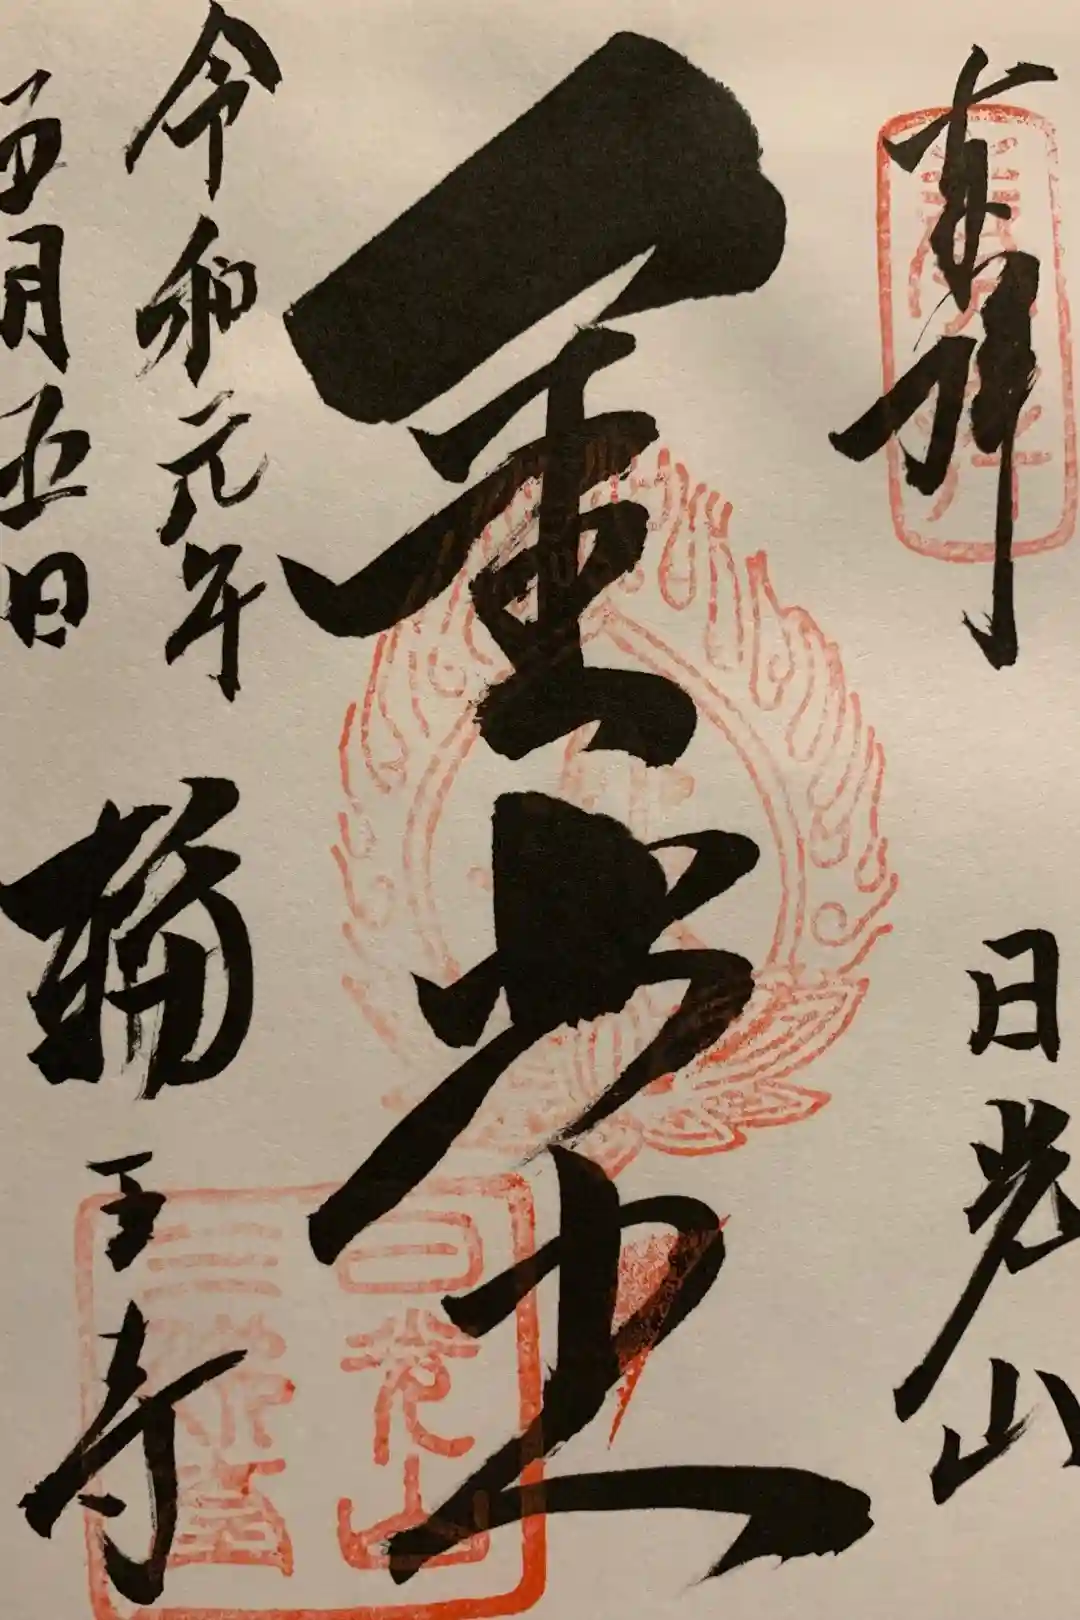 奉拝
日光山
金堂
令和元年
月五日
輪王寺
日光山
三佛堂